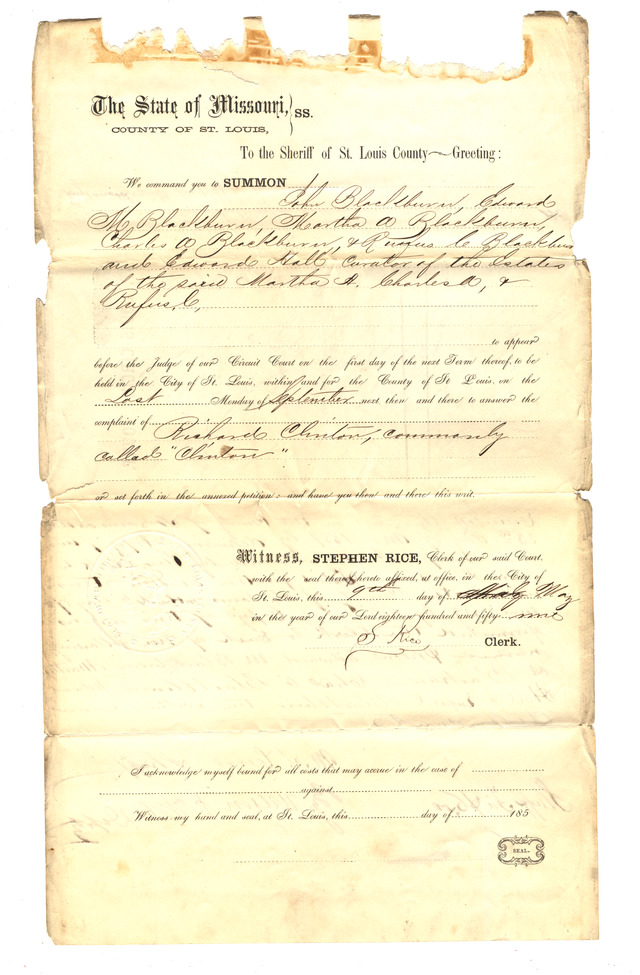 The State of Missouri, } SS.
COUNTY OF ST. LOUIS,
To the Sheriff of St. Louis County—Greeting:
We command you to SUMMON
John Blackburn, Edward
M Blackburn, Martha A Blackburn,
Charles A Blackburn, & Rufus C Blackburn
and Edward Hall curator of the Estates
of the said Martha A, Charles A, &
Rufus, C,
to appear
before the Judge of our Circuit Court on the first day of the next Term thereof, to be
held in the City of St. Louis, within and for the County of St Louis, on the
Last Monday of September next then and there to answer the
complaint of
Richard Clinton, commonly
called "Clinton"
or set forth in the annexed petition: and have you then and there this writ.
Witness, STEPHEN RICE, Clerk of our said Court,
with the seal thereof hereto affixed, at office, in the City of
St. Louis, this 9th day of May
in the year of our Lord eighteen hundred and fifty nine
S Rice Clerk.
I acknowledge myself bound for all costs that may accrue in the case of
against
Witness my hand and seal, at St. Louis, this day of 185
SEAL.